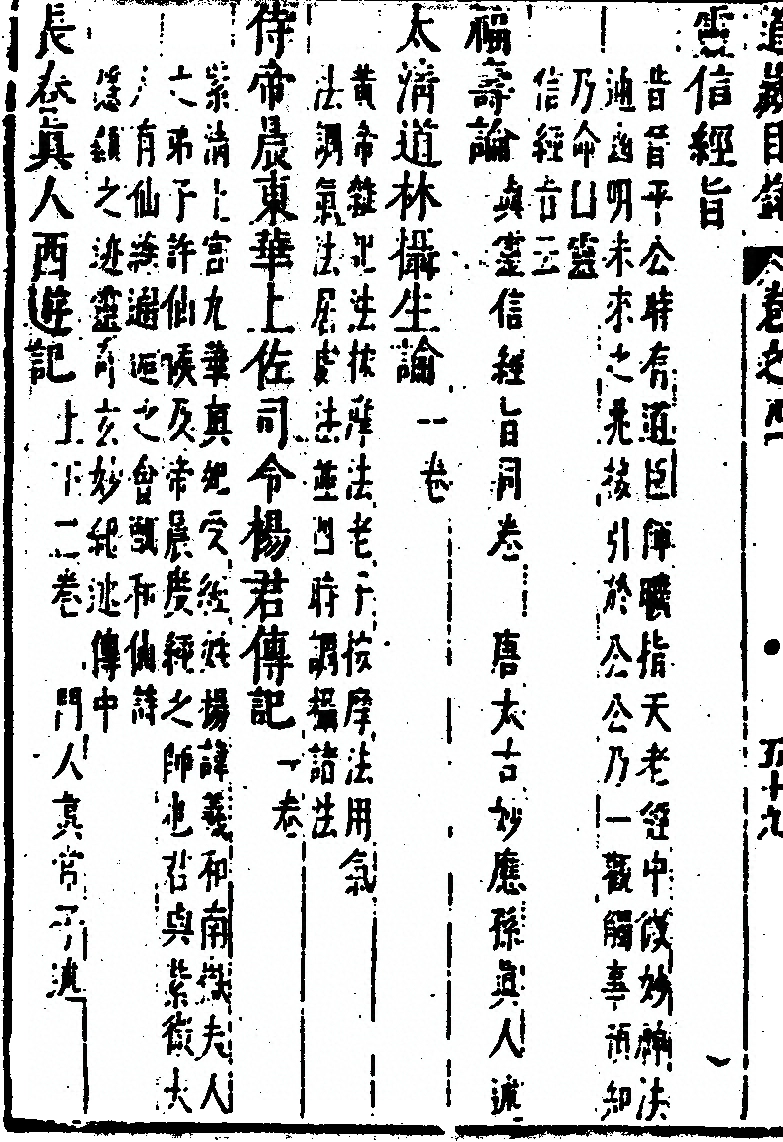 道藏目錄 卷之四 五十九
靈信經旨
昔晉平公時有道臣師曠指天老經中後妙術法
通幽明未來之兆接引於公公乃一觀觸事預知
乃命曰靈
信經旨云
福壽論 與靈信經旨同卷 唐太古妙應孫真人述
太清道林攝生論 一卷
黃帝雜忌法按摩法老子按摩法用氣
法調氣法居處法並四時調攝諸法
侍帝晨東華上佐司令楊君傳記 一卷
紫清上宮九華真妃受經 楊諱羲和南嶽夫人
之弟子許仙侯及帝晨度經之師也君與紫微夫
人有仙 邂逅之會 和仙詩
隱顯之迹靈奇玄妙紀述傳中
長春真人西遊記 上下二卷 門人真常子述